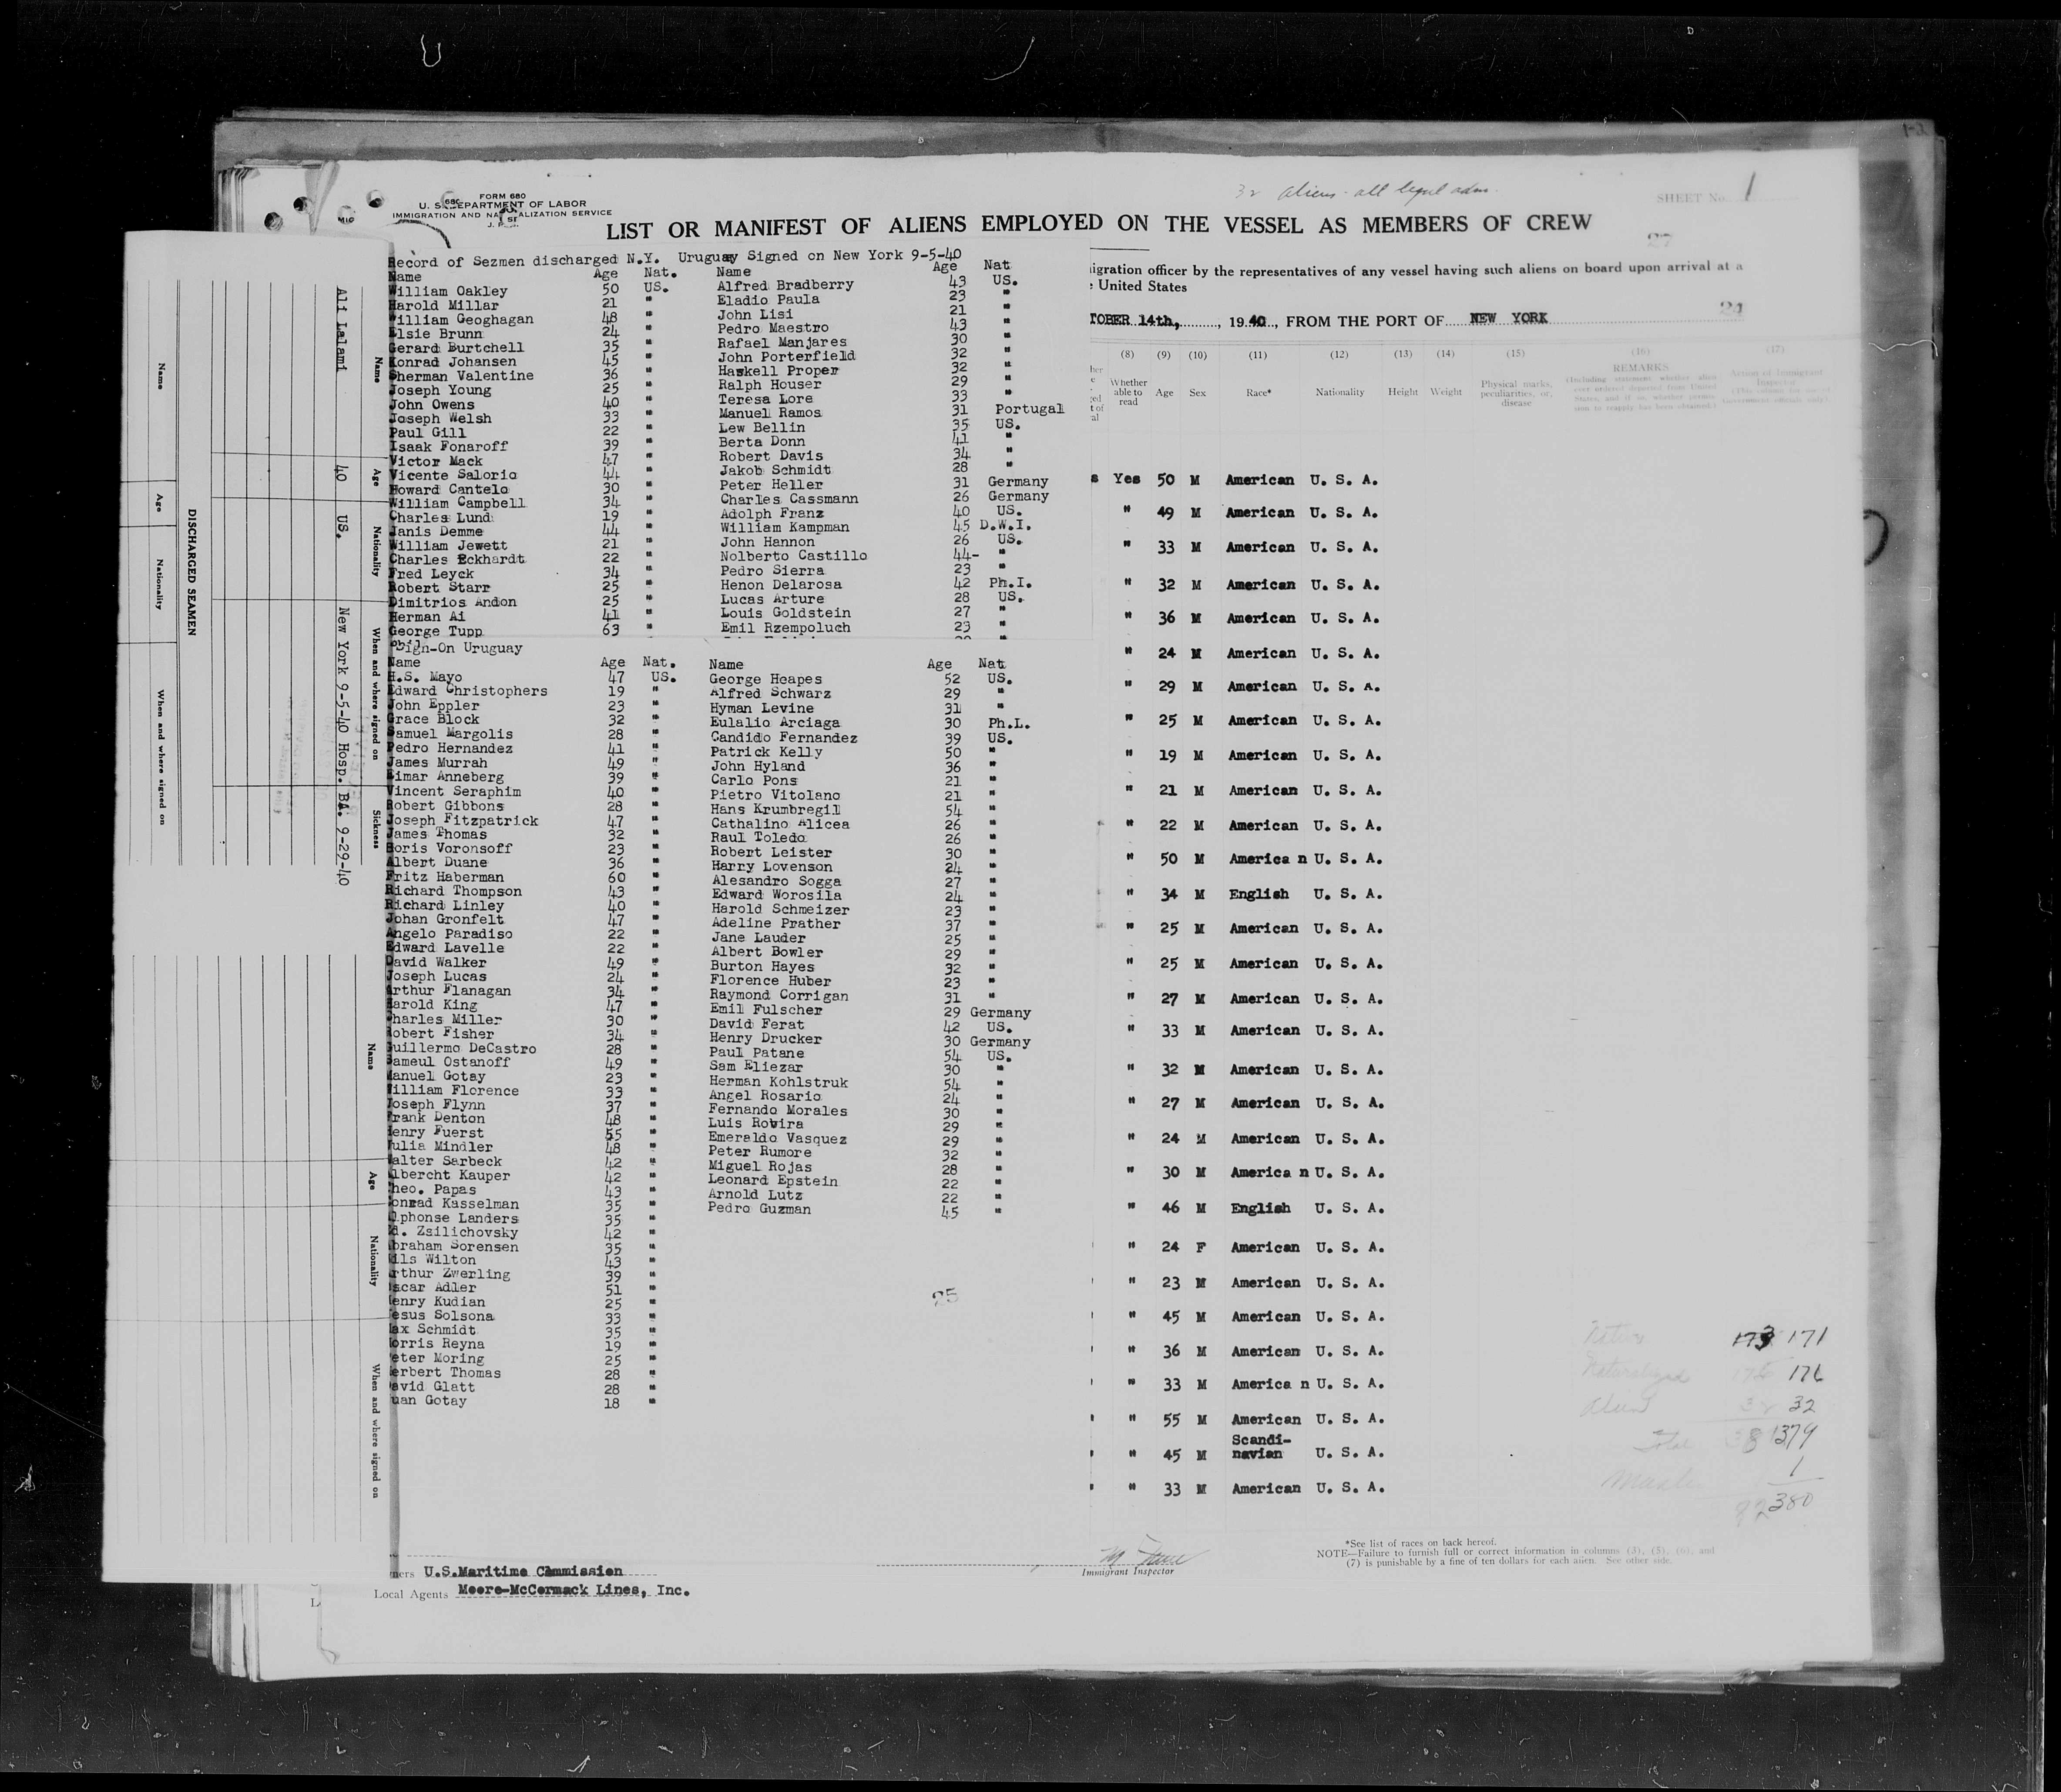 32 aliens - all legal adm.
SHEET No. 1
FORM 680
U. S. DEPARTMENT OF LABOR
IMMIGRATION AND NATURALIZATION SERVICE
LIST OR MANIFEST OF ALIENS EMPLOYED ON THE VESSEL AS MEMBERS OF CREW
27
Record of Sezmen discharged N.Y. Uruguay Signed on New York 9-5-40
Name Age Nat. Name Age Nat
William Oakley 50 US. Alfred Bradberry 43 US.
Harold Millar 21 " Eladio Paula 23 "
William Geoghagan 48 " John Lisi 21 "
Elsie Brunn 24 " Pedro Maestro 43 "
Gerard Burtchell 35 " Rafael Manjares 30 "
Konrad Johansen 45 " John Porterfield 32 "
Sherman Valentine 36 " Haskell Proper 32 "
Joseph Young 25 " Ralph Houser 29 "
John Owens 40 " Teresa Lore 33 "
Joseph Welsh 33 " Manuel Ramos 31 Portugal
Paul Gill 22 " Lew Bellin 35 US.
Isaak Fonaroff 39 " Berta Donn 41 "
Victor Mack 47 " Robert Davis 34 "
Vicente Salorio 44 " Jakob Schmidt 28 "
Howard Cantelo 30 " Peter Heller 31 Germany
William Campbell 34 " Charles Cassmann 26 Germany
Charles Lund 19 " Adolph Franz 40 US.
Janis Demme 44 " William Kampman 45 D.W.I.
William Jewett 21 " John Hannon 26 US.
Charles Eckhardt 22 " Nolberto Castillo 44- "
Fred Leyck 34 " Pedro Sierra 23 "
Robert Starr 25 " Henon Delarosa 42 Ph.I.
Dimitrios Andon 25 " Lucas Arture 28 US.
Herman Ai 41 " Louis Goldstein 27 "
George Tupp 63 " Emil Rzempoluch 23 "
Sign-On Uruguay
Name Age Nat. Name Age Nat
H.S. Mayo 47 US. George Heapes 52 US.
Edward Christophers 19 " Alfred Schwarz 29 "
John Eppler 23 " Hyman Levine 31 "
Grace Block 32 " Eulalio Arciaga 30 Ph.L.
Samuel Margolis 28 " Candido Fernandez 39 US.
Pedro Hernandez 41 " Patrick Kelly 50 "
James Murrah 49 " John Hyland 36 "
Eimar Anneberg 39 " Carlo Pons 21 "
Vincent Seraphim 40 " Pietro Vitolano 21 "
Robert Gibbons 28 " Hans Krumbregil 54 "
Joseph Fitzpatrick 47 " Cathalino Alicea 26 "
James Thomas 32 " Raul Toledo 26 "
Boris Voronsoff 23 " Robert Leister 30 "
Albert Duane 36 " Harry Lovenson 24 "
Fritz Haberman 60 " Alesandro Sogga 27 "
Richard Thompson 43 " Edward Worosila 24 "
Richard Linley 40 " Harold Schmeizer 23 "
Johan Gronfelt 47 " Adeline Prather 37 "
Angelo Paradiso 22 " Jane Lauder 25 "
Edward Lavelle 22 " Albert Bowler 29 "
David Walker 49 " Burton Hayes 32 "
Joseph Lucas 24 " Florence Huber 23 "
Arthur Flanagan 34 " Raymond Corrigan 31 "
Harold King 47 " Emil Fulscher 29 Germany
Charles Miller 30 " David Ferat 42 US.
Robert Fisher 34 " Henry Drucker 30 Germany
Guillermo DeCastro 28 " Paul Patane 54 US.
Sameul Ostanoff 49 " Sam Eliezar 30 "
Manuel Gotay 23 " Herman Kohlstruk 54 "
William Florence 33 " Angel Rosario 24 "
Joseph Flynn 37 " Fernando Morales 30 "
Frank Denton 48 " Luis Rovira 29 "
Henry Fuerst 55 " Emeraldo Vasquez 29 "
Julia Mindler 48 " Peter Rumore 32 "
Walter Sarbeck 42 " Miguel Rojas 28 "
Albercht Kauper 42 " Leonard Epstein 22 "
Theo. Papas 43 " Arnold Lutz 22 "
Conrad Kasselman 35 " Pedro Guzman 45 "
Alphonse Landers 35 "
Ed. Zsilichovsky 42 "
Abraham Sorensen 35 "
Nils Wilton 43 "
Arthur Zwerling 39 "
Oscar Adler 51 "
Henry Kudian 25 "
Jesus Solsona 33 "
Max Schmidt 35 "
Morris Reyna 19 "
Peter Moring 25 "
Herbert Thomas 28 "
David Glatt 28 "
Juan Gotay 18 "
25
igration officer by the representatives of any vessel having such aliens on board upon arrival at a
United States
TOBER 14th, , 1940 , FROM THE PORT OF NEW YORK
24
(8) (9) (10) (11) (12) (13) (14) (15) (16) (17)
Whether able to read Age Sex Race* Nationality Height Weight Physical marks, peculiarities, or disease
REMARKS
(Including statement whether alien ever ordered deported from United States, and if so, whether permission to reapply has been obtained.)
Action of Immigrant Inspector
s Yes 50 M American U. S. A.
" 49 M American U. S. A.
" 33 M American U. S. A.
" 32 M American U. S. A.
" 36 M American U. S. A.
" 24 M American U. S. A.
" 29 M American U. S. A.
" 25 M American U. S. A.
" 19 M American U. S. A.
" 21 M American U. S. A.
" 22 M American U. S. A.
" 50 M America n U. S. A.
" 34 M English U. S. A.
" 25 M American U. S. A.
" 25 M American U. S. A.
" 27 M American U. S. A.
" 33 M American U. S. A.
" 32 M American U. S. A.
" 27 M American U. S. A.
" 24 M American U. S. A.
" 30 M America n U. S. A.
" 46 M English U. S. A.
" 24 F American U. S. A.
" 23 M American U. S. A.
" 45 M American U. S. A.
" 36 M American U. S. A.
" 33 M America n U. S. A.
" 55 M American U. S. A.
" 45 M Scandi-
navian U. S. A.
" 33 M American U. S. A.
173 171
Naturalized 176
Aliens 32 32
Total 379
1
380
*See list of races on back hereof.
NOTE—Failure to furnish full or correct information in columns (3), (5), (6), and
(7) is punishable by a fine of ten dollars for each alien. See other side.
Immigrant Inspector
ners U.S.Maritime Commission
Local Agents Moore-McCormack Lines, Inc.
DISCHARGED SEAMEN
Name Age Nationality When and where signed on
Name Age Nationality When and where signed on Sickness
Ali Lalami 40 US. New York 9-5-40 Hosp. BA. 9-29-40
Name Age Nationality When and where signed on